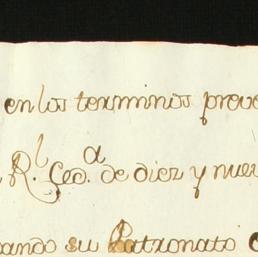 en los terminos preve
R.l Ced.a de diez y nuev
pando su Patronato